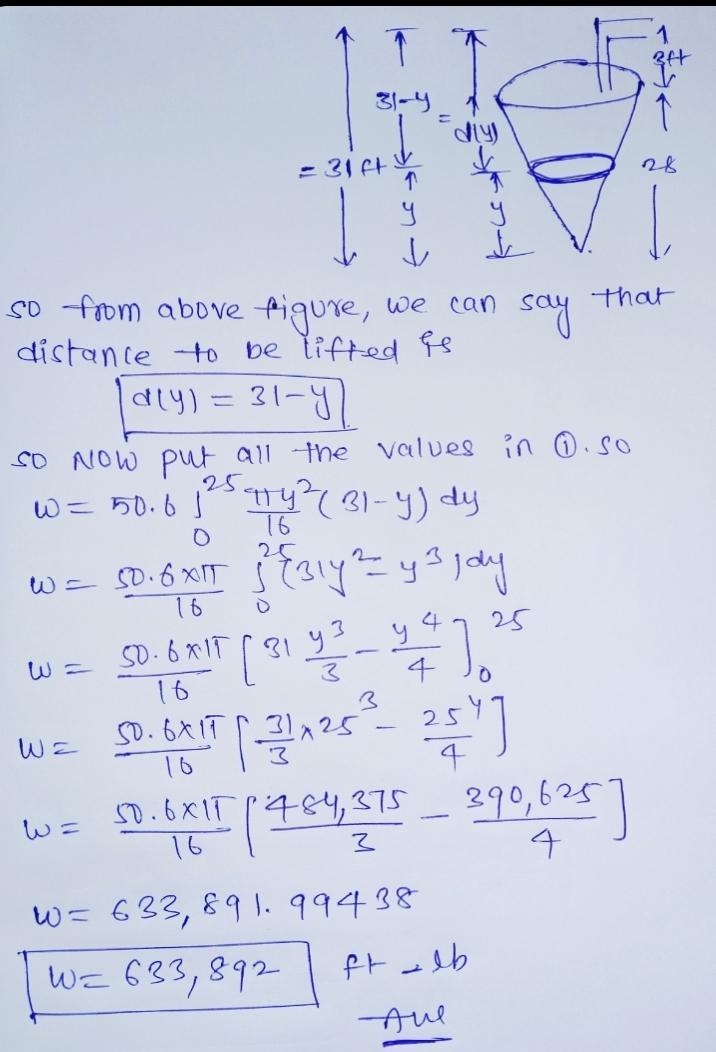 1
3ft
31-y
=
d(y)
= 31 ft
28
y
y
so from above figure, we can say that
distance to be lifted is
d(y) = 31-y
so NOW put all the values in ①. so
W = 50.6 ∫₀²⁵ πy²/16 (31-y) dy
W = 50.6×π/16 ∫₀²⁵ (31y² - y³) dy
W = 50.6×π/16 [31 y³/3 - y⁴/4]₀²⁵
W = 50.6×π/16 [31/3 × 25³ - 25⁴/4]
W = 50.6×π/16 [484,375/3 - 390,625/4]
W = 633,891.99438
W = 633,892 ft-lb
Ans